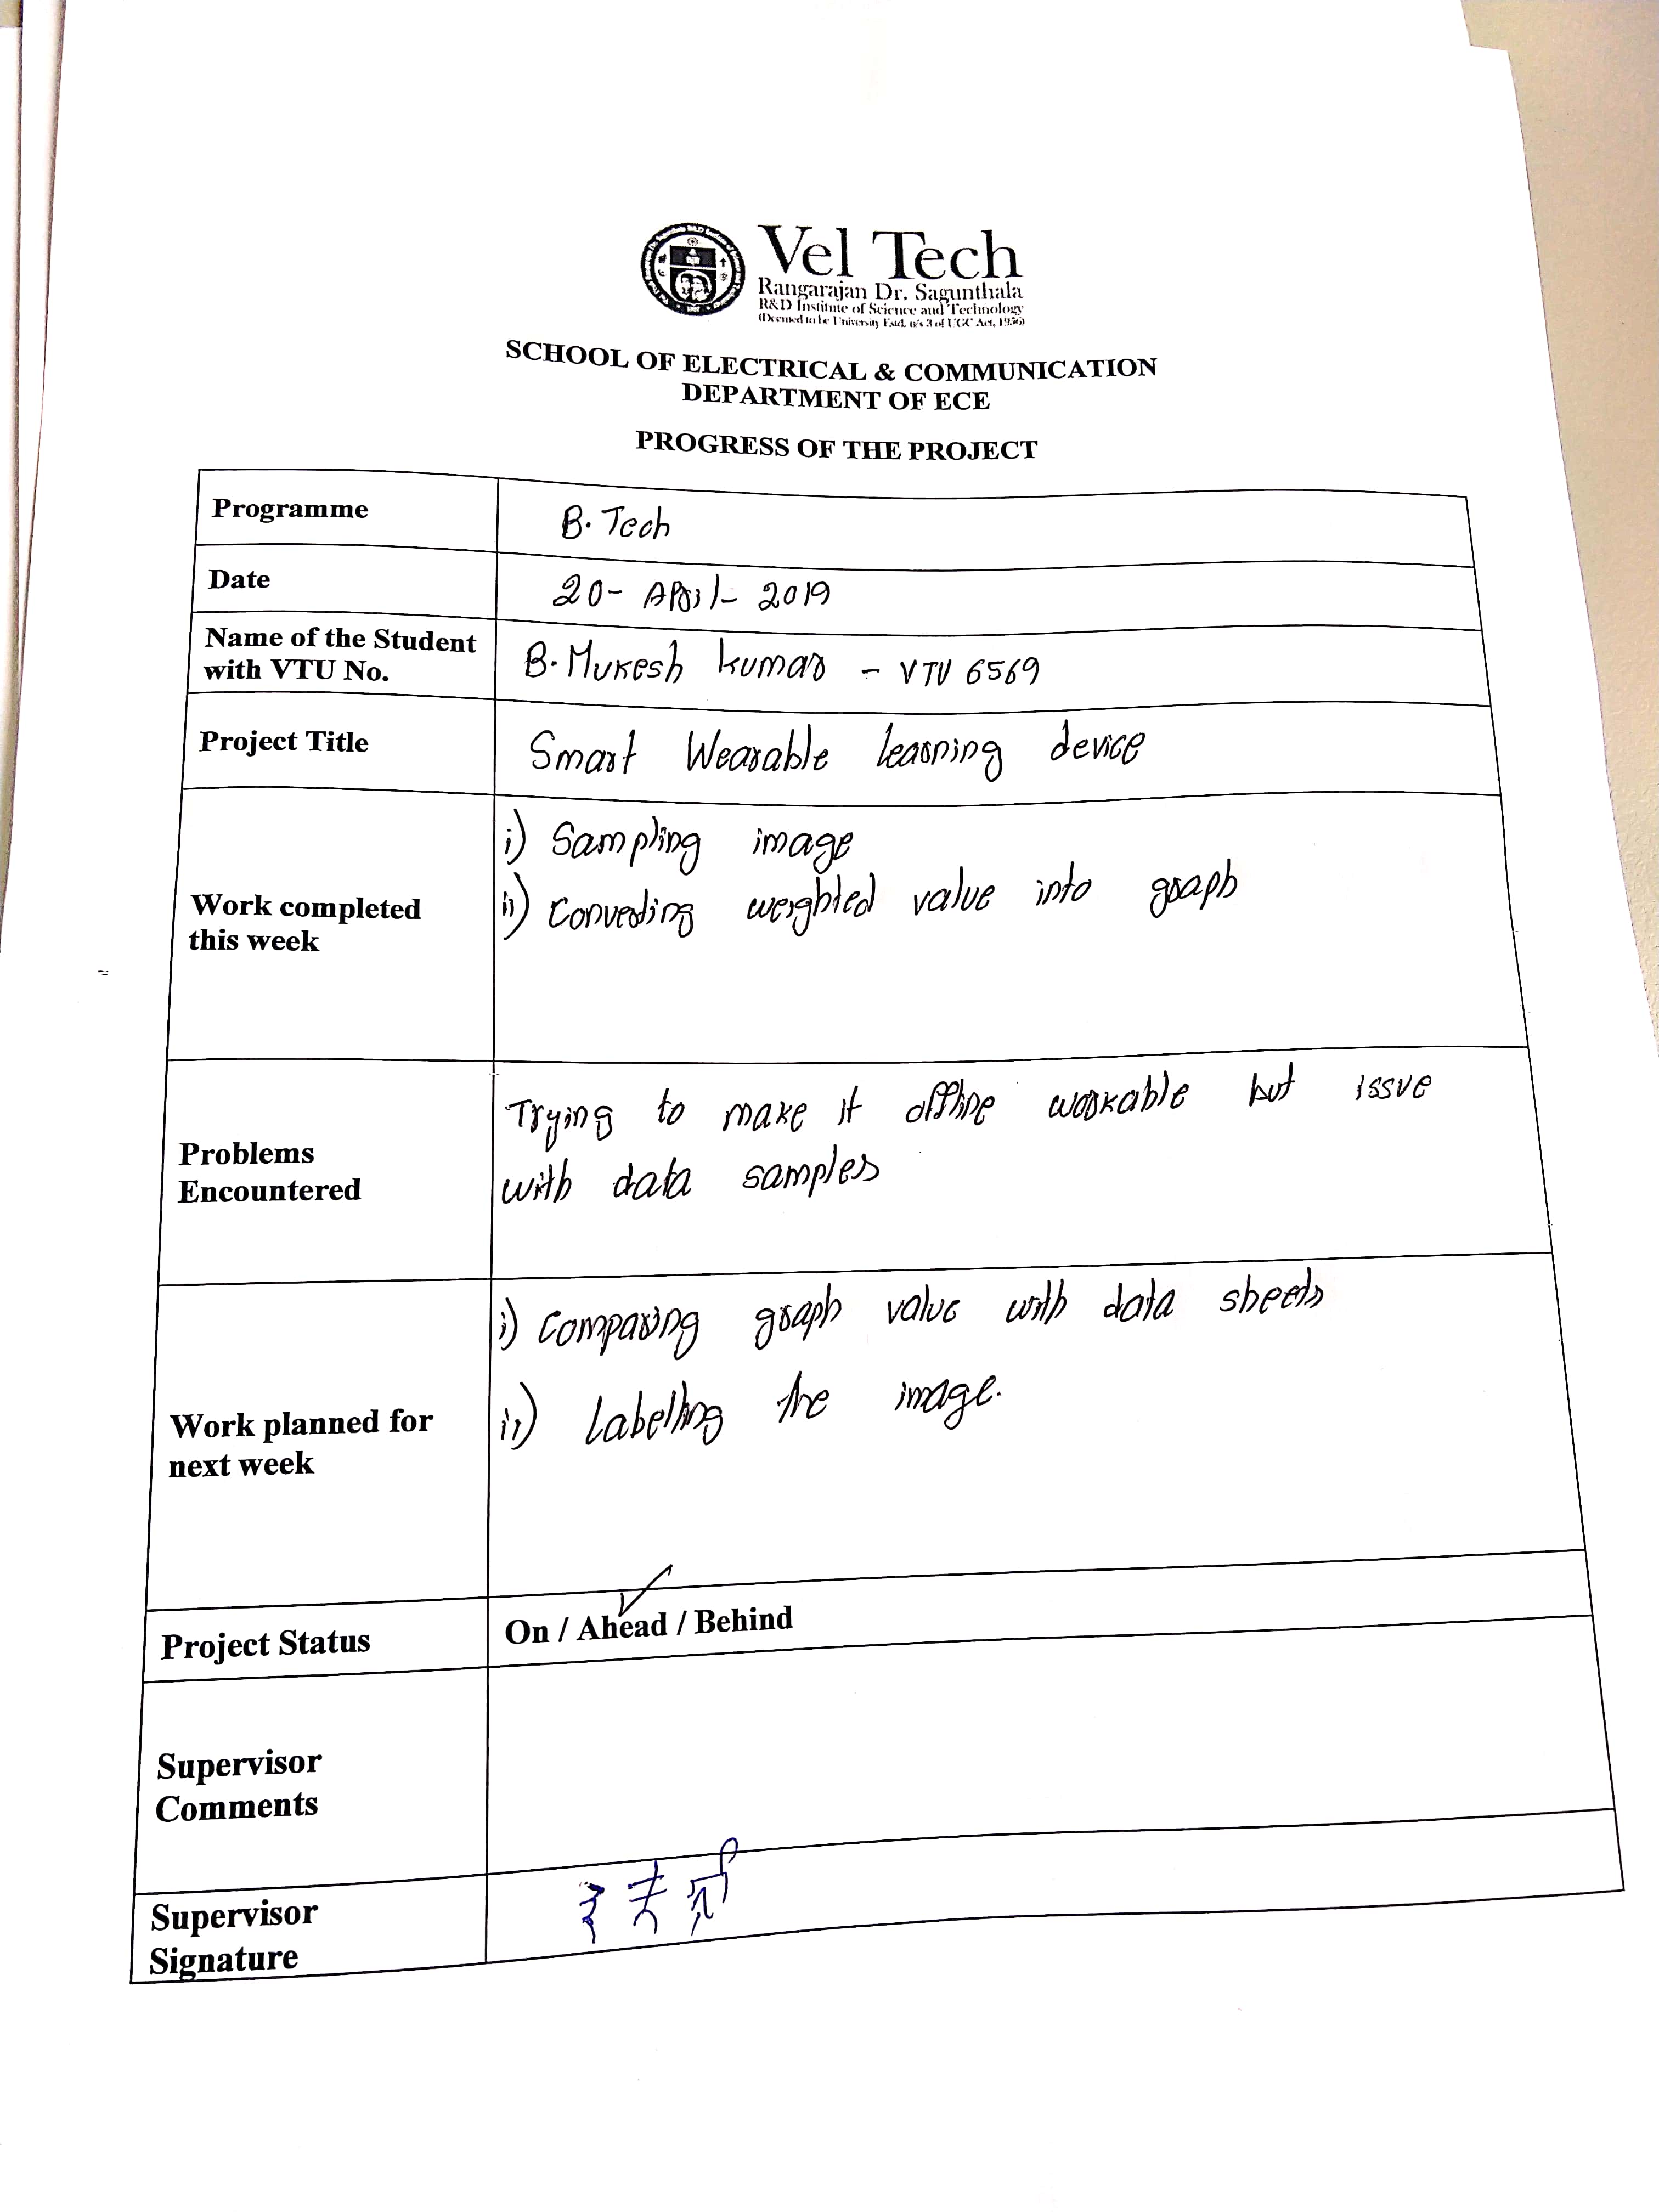 Vel Tech
Rangarajan Dr. Sagunthala
R&D Institute of Science and Technology
(Deemed to be University Estd. u/s 3 of UGC Act, 1956)
SCHOOL OF ELECTRICAL & COMMUNICATION
DEPARTMENT OF ECE
PROGRESS OF THE PROJECT
Programme
B. Tech
Date
20- April- 2019
Name of the Student
with VTU No.
B. Mukesh kumar - VTU 6569
Project Title
Smart Wearable learning device
Work completed
this week
i) Sampling image
ii) Converting weighted value into graph
Problems
Encountered
Trying to make it offline workable but issue
with data samples
Work planned for
next week
i) Comparing graph value with data sheets
ii) Labelling the image.
Project Status
On / Ahead / Behind
Supervisor
Comments
Supervisor
Signature